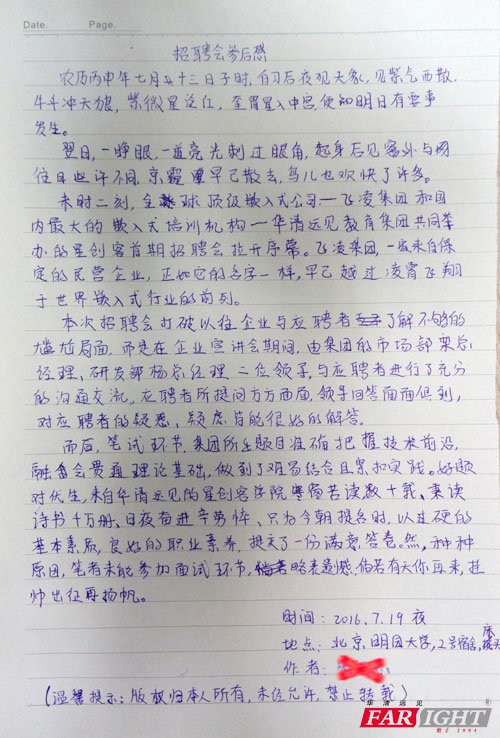 Date.  Page.
招聘会参后感
农历丙申年七月六十三日子时,自习后夜观天象,见紫气西散,
牛斗冲天煌,紫微星泛红,奎胃星入中宫便知明日有要事
发生。
翌日,一睁眼,一道亮光刺过眼角,起身后见窗外与
往日些许不同,京霾早已散去,鸟儿也欢快了许多。
未时二刻,全球顶级嵌入式公司一飞凌集团和国
内最大的嵌入式培训机构一华清远见教育集团共同举
办的星创客首期招聘会拉开序幕。飞凌集团,一家来自保
定的民营企业,正如它的名字一样,早已越过凌霄飞翔
于世界嵌入式行业的前列。
本次招聘会打破以往企业与应聘者了解不够的
尴尬局面,而是在企业宣讲会期间,由集团的市场部栗总
经理、研发部杨总经理二位领导,与应聘者进行了充分
的沟通交流,应聘者所提问方方面面,领导回答面面俱到,
对应聘者的疑惑、疑虑皆能很好的解答。
而后,笔试环节,集团所出题目准确把握技术前沿,
融会贯通理论基础,做到了难易结合且紧扣实践。好题
对伏生,来自华清远见的星创客学院寒窗苦读数十载、熟读
诗书千万册、日夜奋进辛劳悴、只为今朝提名时,以过硬的
基本素质,良好的职业素养,提交了一份满意答卷。然,种种
原因,笔者未能参加面试环节,略表遗憾,倘若有天你再来,挂
帅出征再扬帆。
时间:2016.7.19夜
地点:北京明园大学,2号宿舍,床头
作者:
(温馨提示:版权归本人所有,未经允许,禁止转载)
华清远见
FARSIGHT®
始于2004